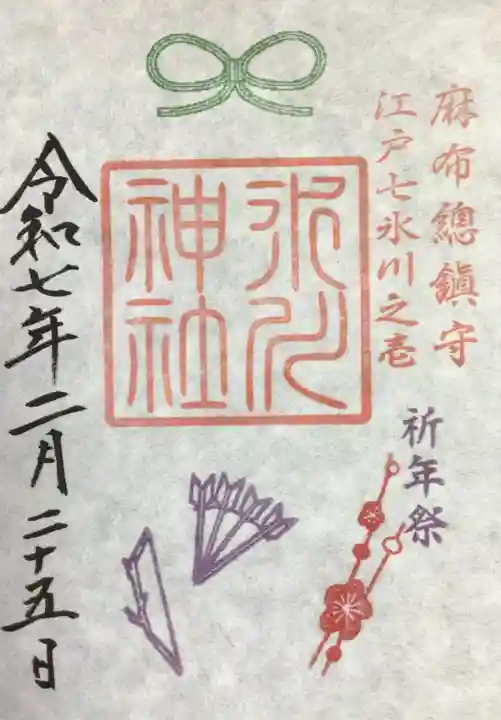 麻布總鎮守
江戸七氷川之壱
氷川
神社
祈年祭
令和七年二月二十五日